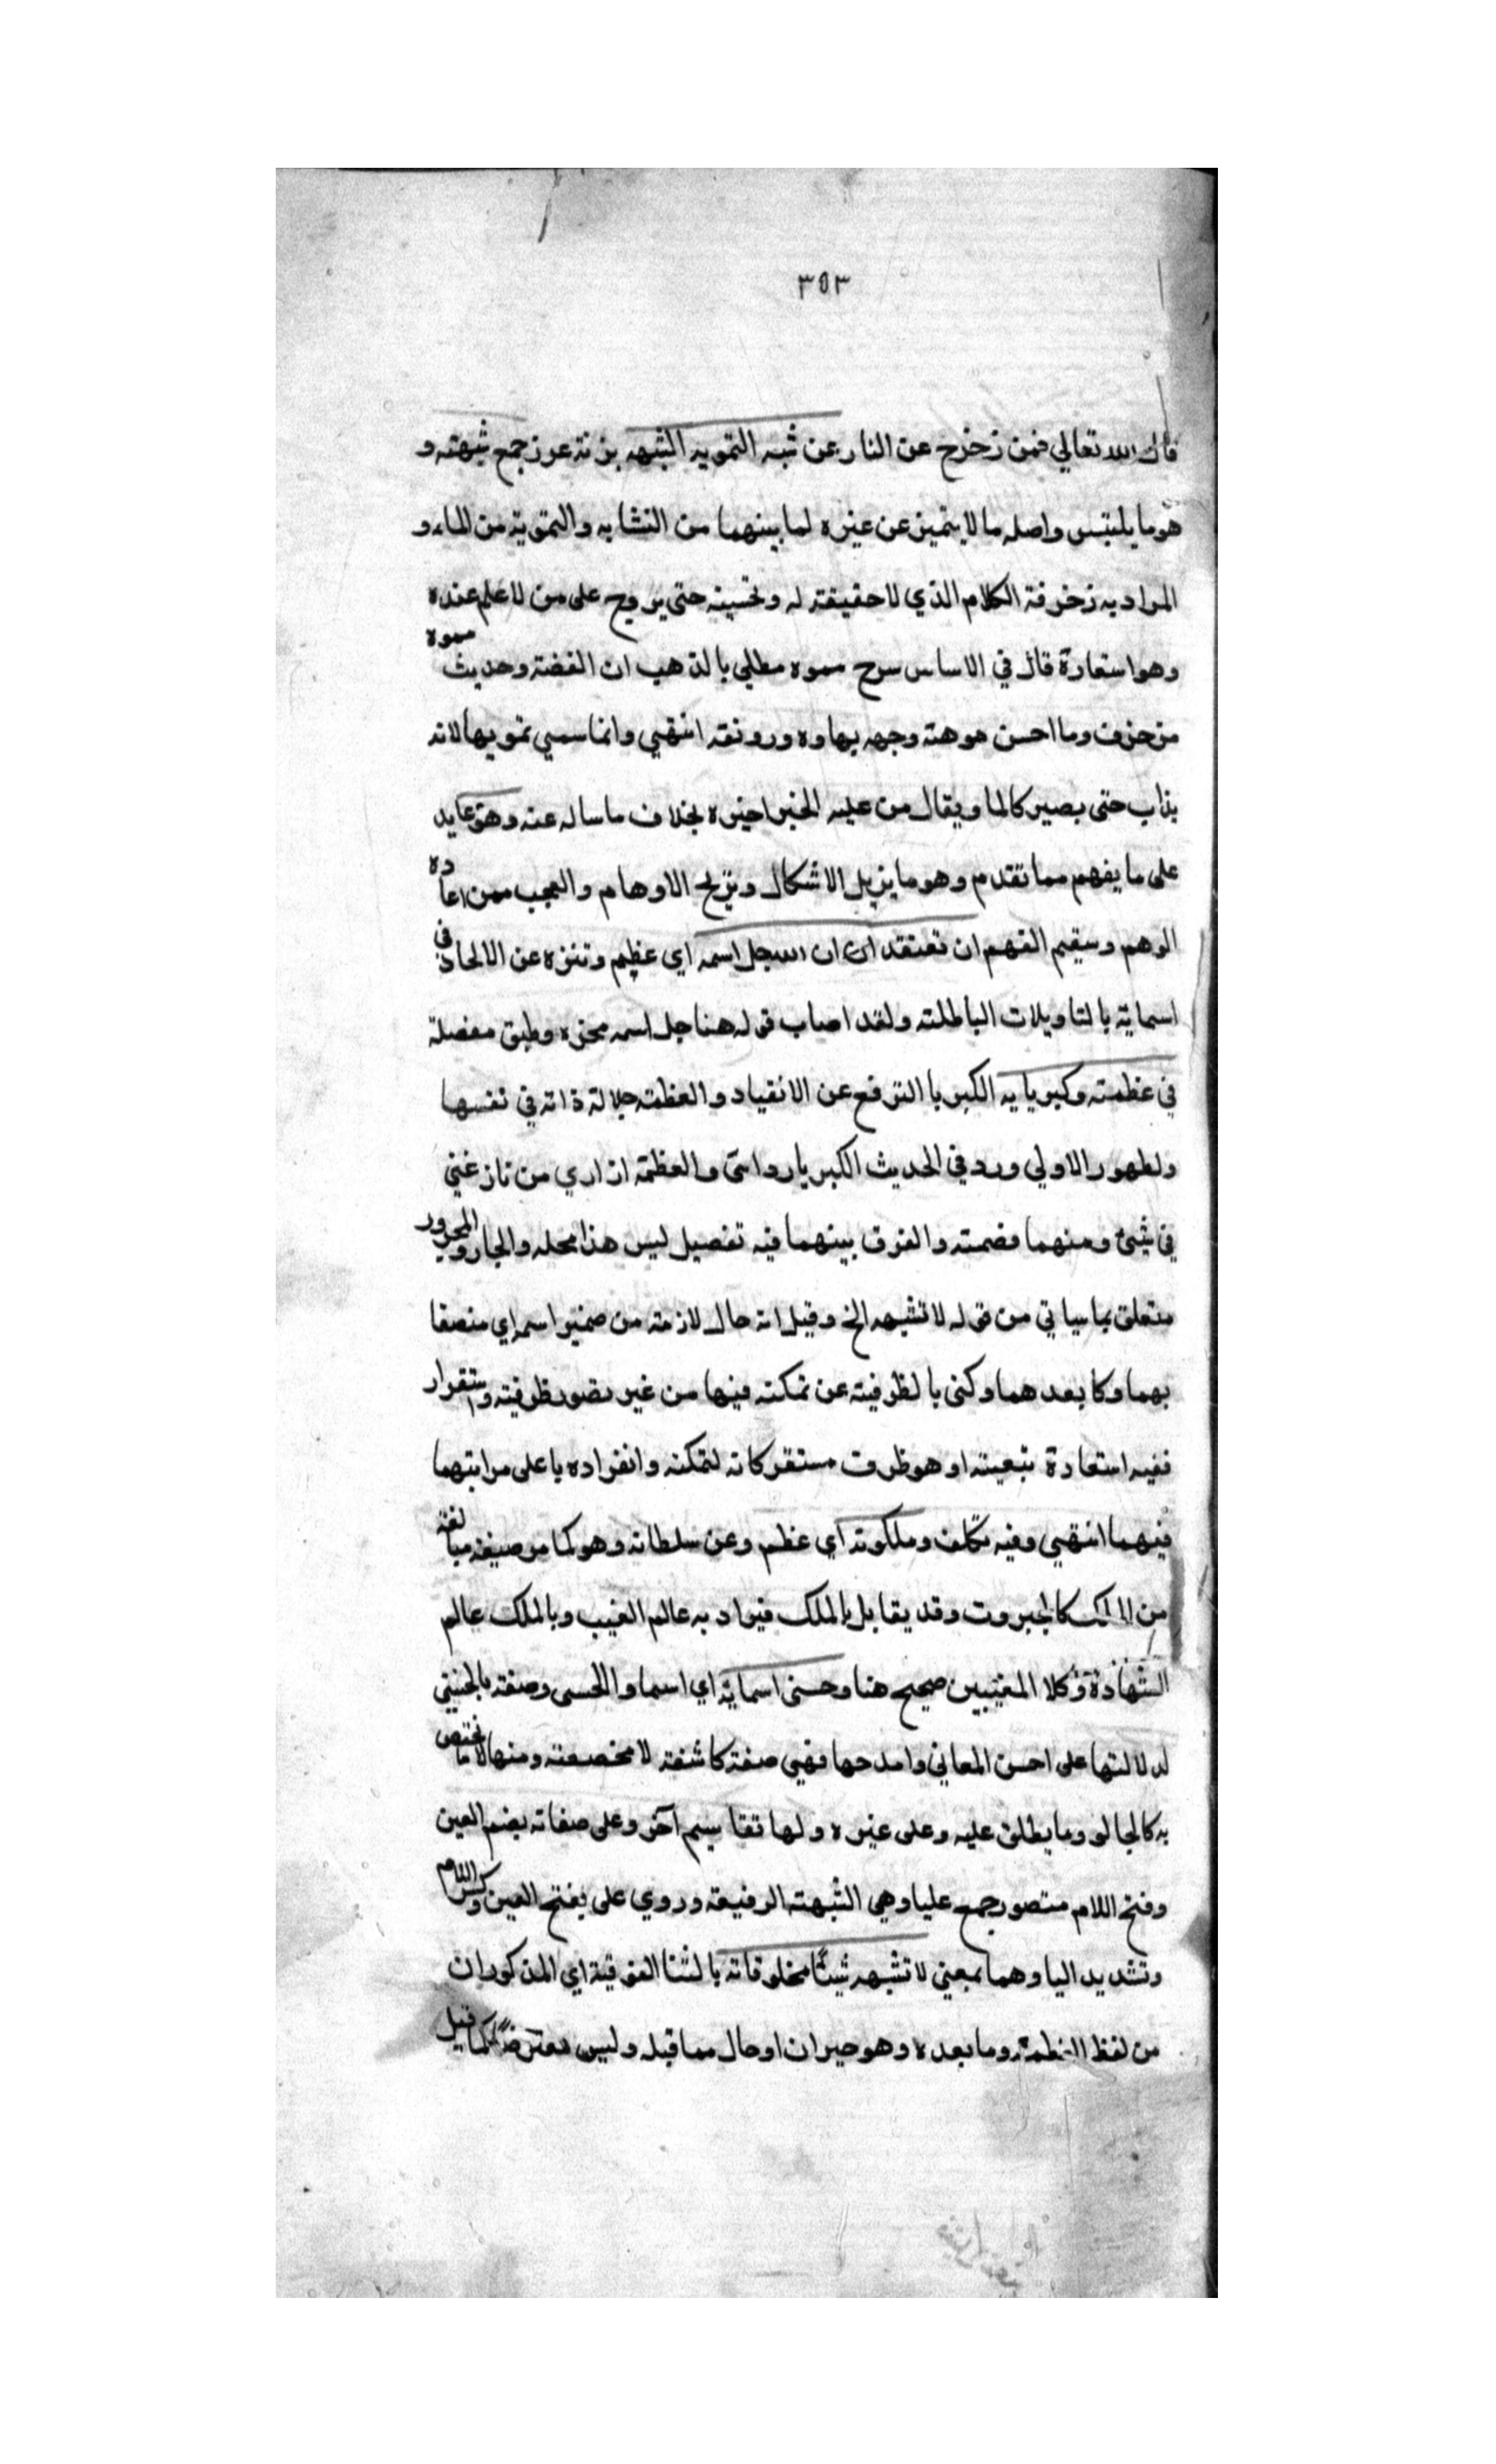 ٣٥٣
قال الله تعالي فمن زحزح عن النار عن شبه التمويه الشبه بزنة عرز جمع شبهته و
هو ما يلتبس واصله ما لا يتميز عن غيره لما بينهما من التشابه والتموية من الماء و
المراد به زخرفة الكلام الذي لا حقيقته له وتحسينه حتى يروج على من لا علم عنده
وهو استعارة قال في الاساس سرح مموه مطلي بالذهب ان الفضة وحديث مموه
مزخرف وما احسن موهته وجهه بهاوه ورونقه انتهي وانما سمي تمويها لانه
يذاب حتى يصير كالما ويقال من عليه الخبر اخبره بخلاف ما ساله عنه وهو عايد
على ما يفهم مما تقدم وهو ما يزيل الاشكال ويزيح الاوهام والعجب ممن اعاده
الوهم وسقيم الفهم ان تعتقد ان الله جل اسمه اي عظم وتنزه عن الالحاد في
اسمايه بالتاويلات الباطلته ولقد اصاب قوله هنا جل اسمه محزه وطبق مفصلة
في عظمته وكبريايه الكبريا الترفع عن الانقياد والعظمته جلالة ذاته في نفسها
ولظهور الاولي ورد في الحديث الكبريا رداى والعظمة ازاري من نازعني
في شئ ومنهما قصمته والفرق بينهما فيه تفصيل ليس هذا محله والجار والمجرور
متعلق بما سياتي من قوله لا تشبهه الخ وقيل انه حال لازمته من ضمير اسمه اي متصفا
بهما وكا بعدهما وكنى بالظرفيته عن تمكنه فيها من غير تصور ظرفيته واستقرار
ففيه استعارة تبعيته او هو ظرف مستقر كانه لتمكنه وانفراده باعلى مراتبهما
فيهما انتهي وفيه تكلف وملكوته اي عظم وعن سلطانه وهو كما مر صيغه مبالغة
من الملك كالجبروت وقد يقابل بالملك فيراد به عالم الغيب وبالملك عالم
الشهادة وكلا المعنيين صحيح هنا وحسنى اسمايه اي اسماوالحسى وصفته بالحسنى
لدلالتها على احسن المعاني وامدحها فهي صفة كاشفة لا مخصصته ومنها ما يختص
به كالجالى وما يطلق عليه وعلى غيره ولها تقاسيم آخر وعلى صفاته بضم العين
وفتح اللام مقصور جمع عليا وهي الشبهته الرفيعة وروي على بفتح العين وكسر اللام
وتشديد اليا وهما بمعنى لا تشبهه شيئا مخلوقاته بالثنا الفوقية اي المذكورات
من لفظ العظمة وما بعده وهو خبر ان او حال مما قبله وليس معترضا كما قيل